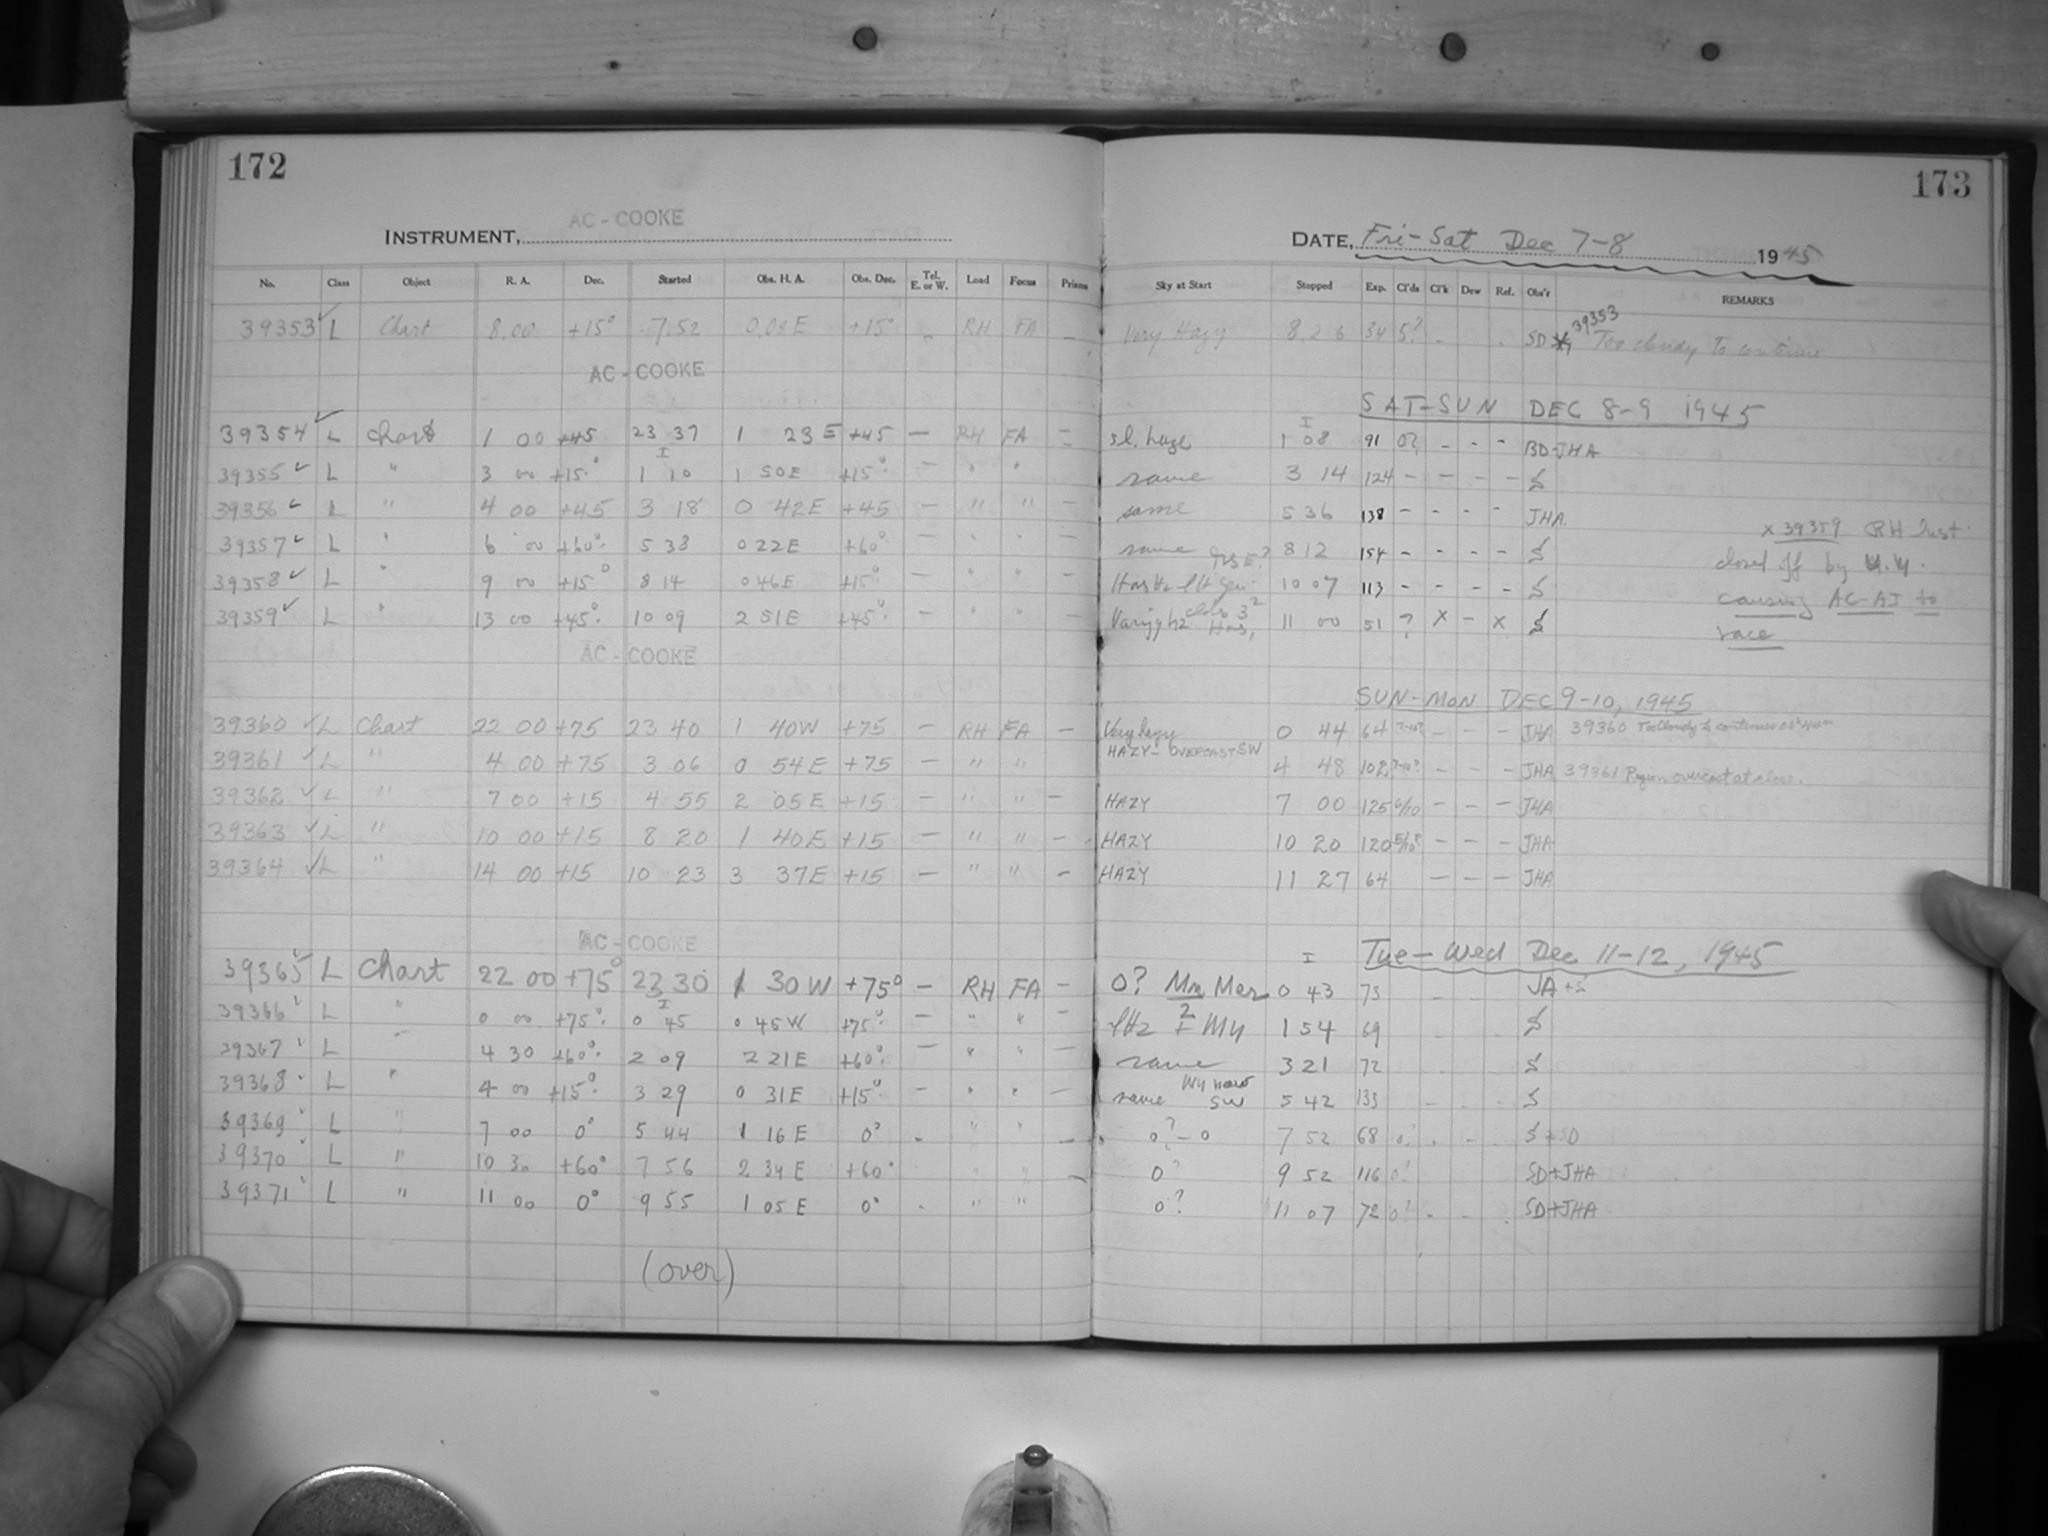 172
173
AC - COOKE
INSTRUMENT,
DATE, Fri-Sat Dec 7-8 1945
No. Class Object R. A. Dec. Started Obs. H. A. Obs. Dec. Tel. E. or W. Load Focus Prisms Sky at Start Stopped Exp. Cl'ds Cl'k Dew Ref. Obs'r REMARKS
39353 ✓ L Chart 8.00 +15° 7.52 0.08E +15° - RH FA - Very Hazy 8 26 34 5? - SD 39353 Too cloudy to continue
AC - COOKE
SAT-SUN DEC 8-9 1945
39354 ✓ L Chart 1 00 +45 23 37 1 23 E +45 - RH FA - sl. haze I 1 08 91 0? - - - BD-JHA
39355 ✓ L " 3 00 +15° I 1 10 1 50E +15° - " " - same 3 14 124 - - - -
39356 ✓ L " 4 00 +45 3 18 0 42E +45 - " " - same 5 36 138 - - - - JHA
39357 ✓ L " 6 00 +60° 5 38 0 22E +60° - " " - same 8 12 154 - - - -
39358 ✓ L " 9 00 +15° 8 14 0 46E +15° - " " - 10 07 113 - - - -
39359 ✓ L " 13 00 +45° 10 09 2 51E +45° - " " - 11 00 51 ? X - X
x 39359 RH
closed off by
causing AC-AI to
race
AC - COOKE
SUN-MON DEC 9-10, 1945
39360 ✓ L Chart 22 00 +75 23 40 1 40W +75 - RH FA - Very hazy 0 44 64 - - - JHA 39360 Too cloudy to continue
39361 ✓ L " 4 00 +75 3 06 0 54E +75 - " " HAZY - OVERCAST SW 4 48 102 - - - JHA 39361 Region overcast at close.
39362 ✓ L " 7 00 +15 4 55 2 05E +15 - " " - HAZY 7 00 125 6/10 - - - JHA
39363 ✓ L " 10 00 +15 8 20 1 40E +15 - " " - HAZY 10 20 120 5/10? - - - JHA
39364 ✓ L " 14 00 +15 10 23 3 37E +15 - " " - HAZY 11 27 64 - - - JHA
AC - COOKE
Tue-Wed Dec 11-12, 1945
39365 ✓ L Chart 22 00 +75° 23 30 1 30W +75° - RH FA - 0? I 0 43 73 - -
39366 ✓ L " 0 00 +75° I 0 45 0 45W +75° - " " - 1 54 69
39367 ✓ L " 4 30 +60° 2 09 2 21E +60° - " " - same 3 21 72
39368 ✓ L " 4 00 +15° 3 29 0 31E +15° - " " - same SW 5 42 133 - - -
39369 ✓ L " 7 00 0° 5 44 1 16E 0° - " " - 0?-0 7 52 68 0? - -
39370 ✓ L " 10 30 +60° 7 56 2 34E +60° " " - 0? 9 52 116 0? SD+JHA
39371 ✓ L " 11 00 0° 9 55 1 05E 0° - " " 0? 11 07 72 0? - - - SD+JHA
(over)